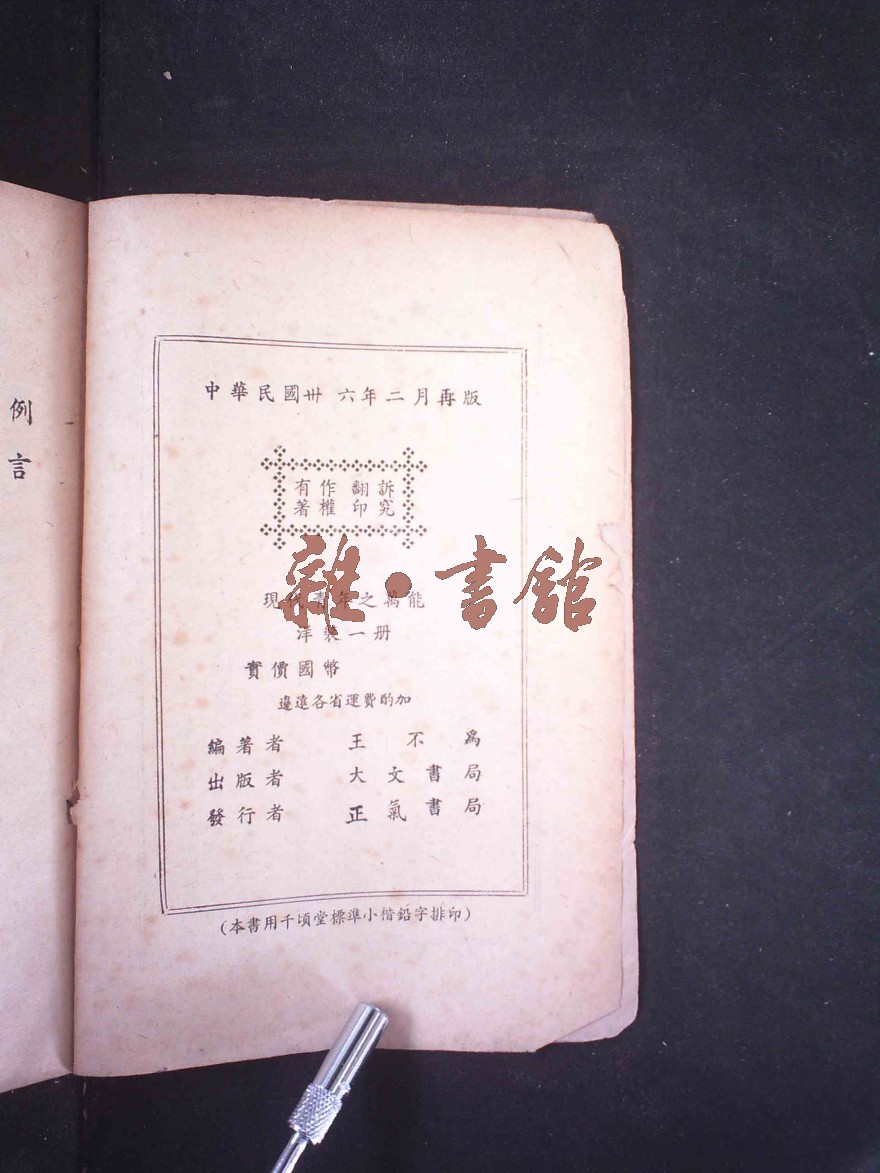 例言
中華民國卅六年二月再版
有作翻訴
著權印究
雜·書館
現代青年之萬能
洋裝一册
實價國幣
邊遠各省運費酌加
編著者 王不爲
出版者 大文書局
發行者 正氣書局
(本書用千頃堂標準小楷鉛字排印)